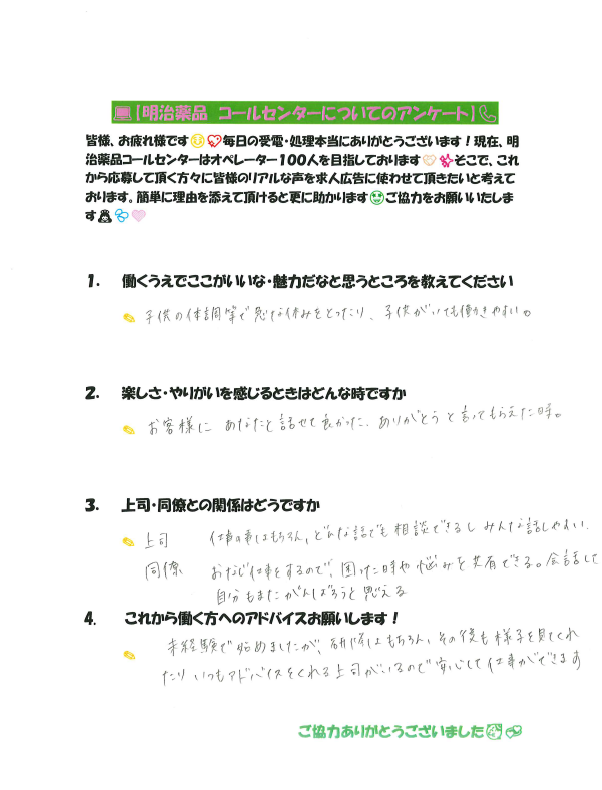 【明治薬品 コールセンターについてのアンケート】
皆様、お疲れ様です毎日の受電・処理本当にありがとうございます！現在、明
治薬品コールセンターはオペレーター100人を目指しております そこで、これ
から応募して頂く方々に皆様のリアルな声を求人広告に使わせて頂きたいと考えて
おります。簡単に理由を添えて頂けると更に助かりますご協力をお願いいたしま
す
1. 働くうえでここがいいな・魅力だなと思うところを教えてください
子供の体調等で急な休みをとったり、子供がいても働きやすい。
2. 楽しさ・やりがいを感じるときはどんな時ですか
お客様に あなたと話せて良かった、ありがとう と言ってもらえた時。
3. 上司・同僚との関係はどうですか
上司 仕事の事はもちろん、どんな話でも相談できるし みんな話しやすい。
同僚 おなじ仕事をするので、困った時や悩みを共有できる。会話して
自分もまたがんばろうと思える
4. これから働く方へのアドバイスお願いします！
未経験で始めましたが、研修はもちろん、その後も様子を見てくれ
たり いつもアドバイスをくれる上司がいるので安心して仕事ができます
ご協力ありがとうございました